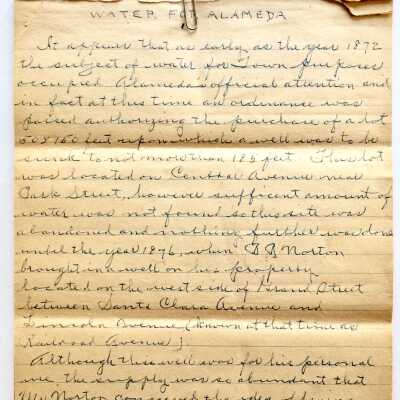 WATER FOR ALAMEDA
It appears that as early as the year 1872
the subject of water for Town purposes
occupied Alameda's official attention and
in fact at this time an ordinance was
passed authorizing the purchase of a lot
60 x 160 feet upon which a well was to be
sunk to not more than 125 feet This lot
was located on Central Avenue near
Park Street, however sufficent amount of
water was not found so this site was
abandoned and nothing further was done
until the year 1876, when Norton
brought in a well on his property
located on the west side of Grand Street
between Santa Clara Avenue and
Lincoln Avenue (known at that time as
Railroad Avenue).
Although this well was for his personal
use, the supply was so abundant that
Mr Norton conceived the idea of